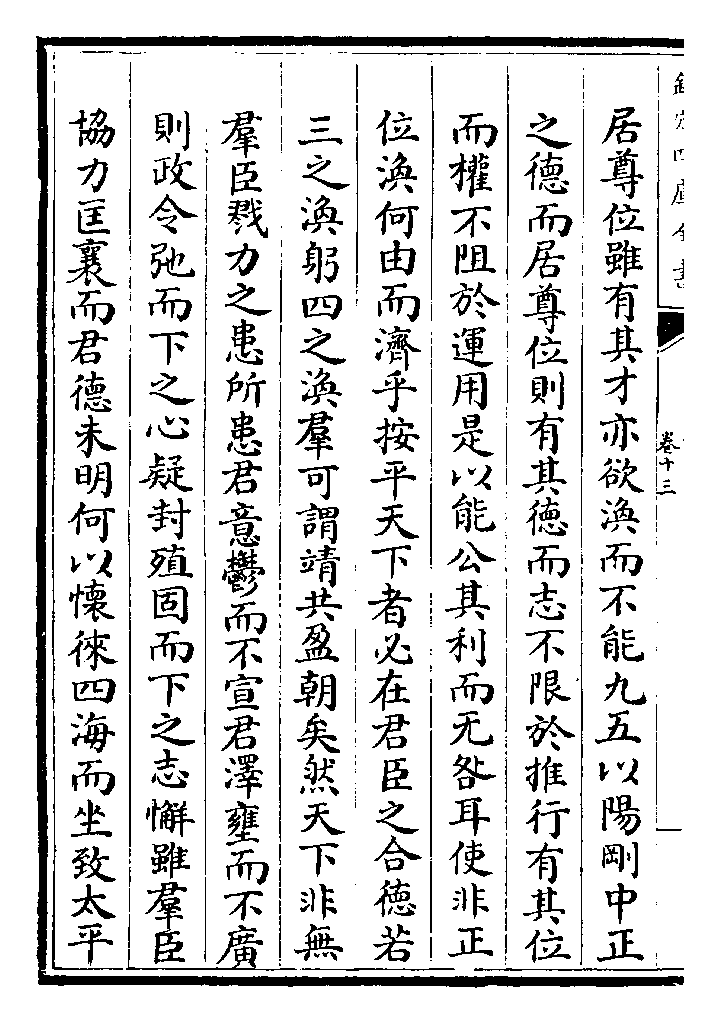 欽定四庫全書
卷十三
居尊位雖有其才亦欲渙而不能九五以陽剛中正
之德而居尊位則有其德而志不限於推行有其位
而權不阻於運用是以能公其利而无咎耳使非正
位渙何由而濟乎按平天下者必在君臣之合德若
三之渙躬四之渙羣可謂靖共盈朝矣然天下非無
羣臣戮力之患所患君意鬱而不宣君澤壅而不廣
則政令弛而下之心疑封殖固而下之志懈雖羣臣
協力匡襄而君德未明何以懷徠四海而坐致太平